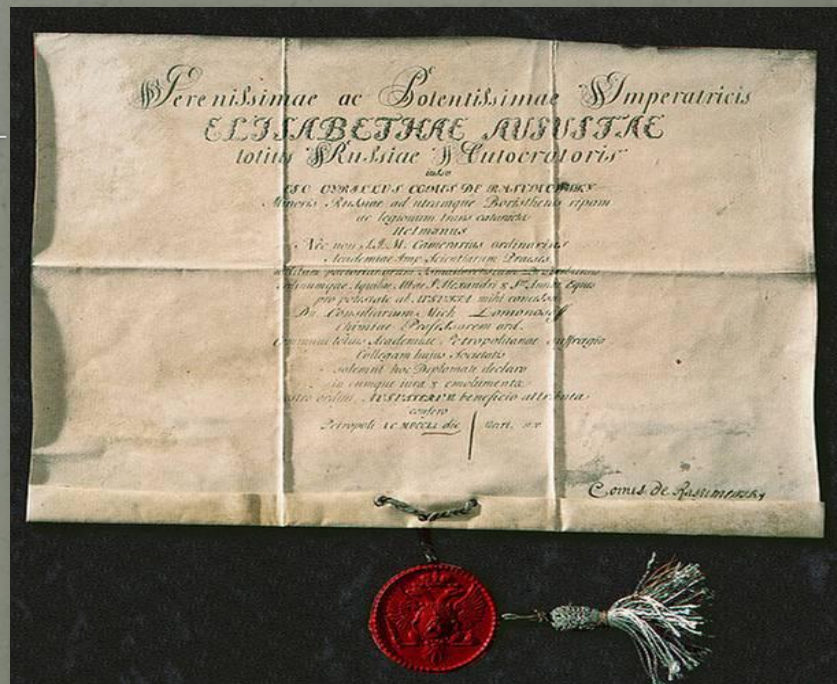 Serenissimae ac Potentissimae Imperatricis
ELISABETHAE AUGUSTAE
totius Russiae Autocratoris
iussu
EGO CYRILLUS COMES DE RASUMOWSKY
Minoris Russiae ad utramque Boristhenis ripam
ac legionum trans cataractas
Hetmanus
Nec non S.I.M. Camerarius ordinarius
Academiae Imp. Scientiarum Praeses
Aquilae Albae S. Alexandri & S. Annae Eques
pro potestate ab AUGUSTA mihi concessa
Dn. Consiliarium Mich Lomonosoff
Chimiae Professorem ord.
Communi totius Academiae Petropolitanae suffragio
Collegam hujus Societatis
solemni hoc Diplomate declaro
in eumque iura & emolumenta
ordini AUGUSTARUM beneficio attributa
confero
Petropoli MDCCLI die
Comes de Rasumowsky